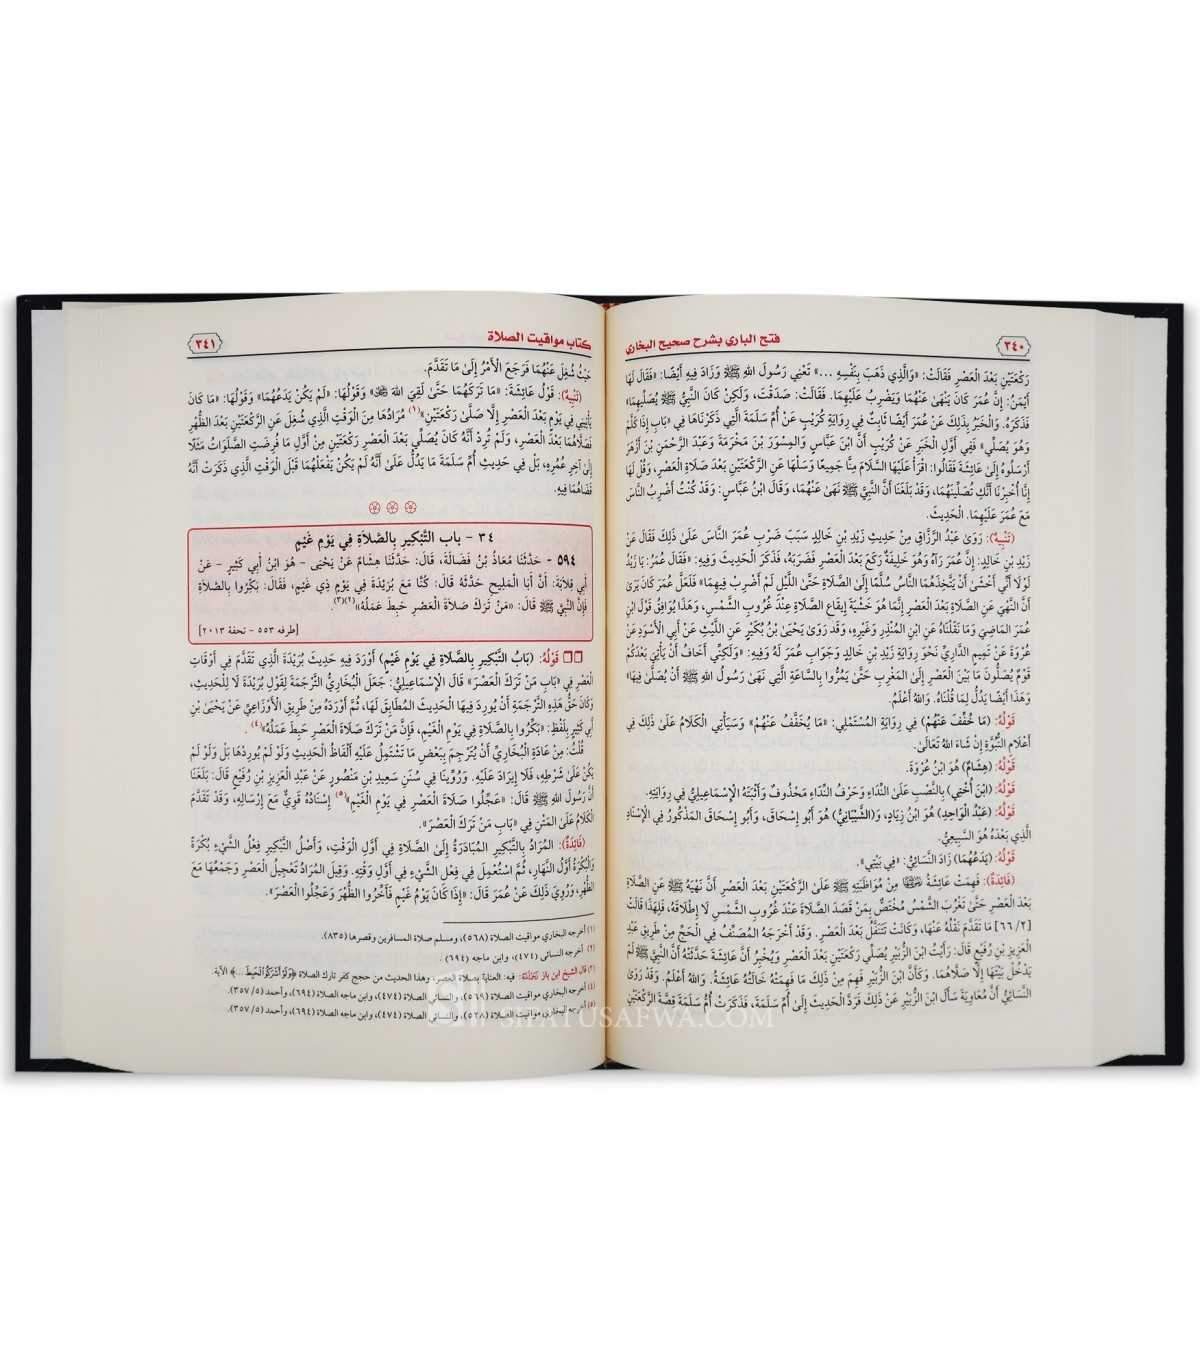 ٣٤٠
فتح الباري بشرح صحيح البخاري
رَكْعَتَيْنِ بَعْدَ الْعَصْرِ فَقَالَتْ: «وَالَّذِي ذَهَبَ بِنَفْسِهِ ...» تَعْنِي رَسُولَ اللهِ ﷺ وَزَادَ فِيهِ أَيْضًا: «فَقَالَ لَهَا
أَيْمَنُ: إِنَّ عُمَرَ كَانَ يَنْهَى عَنْهُمَا وَيَضْرِبُ عَلَيْهِمَا. فَقَالَتْ: صَدَقْتَ، وَلَكِنْ كَانَ النَّبِيُّ ﷺ يُصَلِّيهِمَا»
فَذَكَرَهُ. وَالْخَبَرُ بِذَلِكَ عَنْ عُمَرَ أَيْضًا ثَابِتٌ فِي رِوَايَةِ كُرَيْبٍ عَنْ أُمِّ سَلَمَةَ الَّتِي ذَكَرْنَاهَا فِي «بَابِ إِذَا كُلِّمَ
وَهُوَ يُصَلِّي» فَفِي أَوَّلِ الْخَبَرِ عَنْ كُرَيْبٍ أَنَّ ابْنَ عَبَّاسٍ وَالْمِسْوَرَ بْنَ مَخْرَمَةَ وَعَبْدَ الرَّحْمَنِ بْنَ أَزْهَرَ
أَرْسَلُوهُ إِلَى عَائِشَةَ فَقَالُوا: اقْرَأْ عَلَيْهَا السَّلَامَ مِنَّا جَمِيعًا وَسَلْهَا عَنِ الرَّكْعَتَيْنِ بَعْدَ صَلَاةِ الْعَصْرِ، وَقُلْ لَهَا
إِنَّا أُخْبِرْنَا أَنَّكِ تُصَلِّينَهُمَا، وَقَدْ بَلَغَنَا أَنَّ النَّبِيَّ ﷺ نَهَى عَنْهُمَا، وَقَالَ ابْنُ عَبَّاسٍ: وَقَدْ كُنْتُ أَضْرِبُ النَّاسَ
مَعَ عُمَرَ عَلَيْهِمَا. الْحَدِيثَ.
(تَنْبِيهٌ): رَوَى عَبْدُ الرَّزَّاقِ مِنْ حَدِيثِ زَيْدِ بْنِ خَالِدٍ سَبَبَ ضَرْبِ عُمَرَ النَّاسَ عَلَى ذَلِكَ فَقَالَ عَنْ
زَيْدِ بْنِ خَالِدٍ: إِنَّ عُمَرَ رَآهُ وَهُوَ خَلِيفَةٌ رَكَعَ بَعْدَ الْعَصْرِ فَضَرَبَهُ، فَذَكَرَ الْحَدِيثَ وَفِيهِ: «فَقَالَ عُمَرُ: يَا زَيْدُ
لَوْلَا أَنِّي أَخْشَى أَنْ يَتَّخِذَهُمَا النَّاسُ سُلَّمًا إِلَى الصَّلَاةِ حَتَّى اللَّيْلِ لَمْ أَضْرِبْ فِيهِمَا» فَلَعَلَّ عُمَرَ كَانَ يَرَى
أَنَّ النَّهْيَ عَنِ الصَّلَاةِ بَعْدَ الْعَصْرِ إِنَّمَا هُوَ خَشْيَةَ إِيقَاعِ الصَّلَاةِ عِنْدَ غُرُوبِ الشَّمْسِ، وَهَذَا يُوَافِقُ قَوْلَ ابْنِ
عُمَرَ الْمَاضِيَ وَمَا نَقَلْنَاهُ عَنِ ابْنِ الْمُنْذِرِ وَغَيْرِهِ، وَقَدْ رَوَى يَحْيَى بْنُ بُكَيْرٍ عَنِ اللَّيْثِ عَنْ أَبِي الْأَسْوَدِ عَنْ
عُرْوَةَ عَنْ تَمِيمٍ الدَّارِيِّ نَحْوَ رِوَايَةِ زَيْدِ بْنِ خَالِدٍ وَجَوَابِ عُمَرَ لَهُ وَفِيهِ: «وَلَكِنِّي أَخَافُ أَنْ يَأْتِيَ بَعْدَكُمْ
قَوْمٌ يُصَلُّونَ مَا بَيْنَ الْعَصْرِ إِلَى الْمَغْرِبِ حَتَّى يَمُرُّوا بِالسَّاعَةِ الَّتِي نَهَى رَسُولُ اللهِ ﷺ أَنْ يُصَلَّى فِيهَا»
وَهَذَا أَيْضًا يَدُلُّ لِمَا قُلْنَاهُ. وَاللهُ أَعْلَمُ.
قَوْلُهُ: (مَا خُفِّفَ عَنْهُمْ) فِي رِوَايَةِ الْمُسْتَمْلِي: «مَا يُخَفَّفُ عَنْهُمْ» وَسَيَأْتِي الْكَلَامُ عَلَى ذَلِكَ فِي
أَعْلَامِ النُّبُوَّةِ إِنْ شَاءَ اللهُ تَعَالَى.
قَوْلُهُ: (هِشَامٌ) هُوَ ابْنُ عُرْوَةَ.
قَوْلُهُ: (ابْنَ أُخْتِي) بِالنَّصْبِ عَلَى النِّدَاءِ وَحَرْفُ النِّدَاءِ مَحْذُوفٌ وَأَثْبَتَهُ الْإِسْمَاعِيلِيُّ فِي رِوَايَتِهِ.
قَوْلُهُ: (عَبْدُ الْوَاحِدِ) هُوَ ابْنُ زِيَادٍ، وَ(الشَّيْبَانِيُّ) هُوَ أَبُو إِسْحَاقَ، وَأَبُو إِسْحَاقَ الْمَذْكُورُ فِي الْإِسْنَادِ
الَّذِي بَعْدَهُ هُوَ السَّبِيعِيُّ.
قَوْلُهُ: (يَدَعُهُمَا) زَادَ النَّسَائِيُّ: «فِي بَيْتِي».
(فَائِدَةٌ): فَهِمَتْ عَائِشَةُ مِنْ مُوَاظَبَتِهِ ﷺ عَلَى الرَّكْعَتَيْنِ بَعْدَ الْعَصْرِ أَنَّ نَهْيَهُ ﷺ عَنِ الصَّلَاةِ
بَعْدَ الْعَصْرِ حَتَّى تَغْرُبَ الشَّمْسُ مُخْتَصٌّ بِمَنْ قَصَدَ الصَّلَاةَ عِنْدَ غُرُوبِ الشَّمْسِ لَا إِطْلَاقُهُ، فَلِهَذَا قَالَتْ
[٢/ ٦٦] مَا تَقَدَّمَ نَقْلُهُ عَنْهَا، وَكَانَتْ تَتَنَفَّلُ بَعْدَ الْعَصْرِ. وَقَدْ أَخْرَجَهُ الْمُصَنِّفُ فِي الْحَجِّ مِنْ طَرِيقِ عَبْدِ
الْعَزِيزِ بْنِ رُفَيْعٍ قَالَ: رَأَيْتُ ابْنَ الزُّبَيْرِ يُصَلِّي رَكْعَتَيْنِ بَعْدَ الْعَصْرِ وَيُخْبِرُ أَنَّ عَائِشَةَ حَدَّثَتْهُ أَنَّ النَّبِيَّ ﷺ لَمْ
يَدْخُلْ بَيْتَهَا إِلَّا صَلَّاهُمَا. وَكَأَنَّ ابْنَ الزُّبَيْرِ فَهِمَ مِنْ ذَلِكَ مَا فَهِمَتْهُ خَالَتُهُ عَائِشَةُ. وَاللهُ أَعْلَمُ. وَقَدْ رَوَى
النَّسَائِيُّ أَنَّ مُعَاوِيَةَ سَأَلَ ابْنَ الزُّبَيْرِ عَنْ ذَلِكَ فَرَدَّ الْحَدِيثَ إِلَى أُمِّ سَلَمَةَ، فَذَكَرَتْ أُمُّ سَلَمَةَ قِصَّةَ الرَّكْعَتَيْنِ
كتاب مواقيت الصلاة
٣٤١
حَيْثُ شُغِلَ عَنْهُمَا فَرَجَعَ الْأَمْرُ إِلَى مَا تَقَدَّمَ.
(تَنْبِيهٌ): قَوْلُ عَائِشَةَ: «مَا تَرَكَهُمَا حَتَّى لَقِيَ اللهَ ﷺ» وَقَوْلُهَا: «لَمْ يَكُنْ يَدَعُهُمَا» وَقَوْلُهَا: «مَا كَانَ
يَأْتِينِي فِي يَوْمٍ بَعْدَ الْعَصْرِ إِلَّا صَلَّى رَكْعَتَيْنِ»(١) مُرَادُهَا مِنَ الْوَقْتِ الَّذِي شُغِلَ عَنِ الرَّكْعَتَيْنِ بَعْدَ الظُّهْرِ
فَصَلَّاهُمَا بَعْدَ الْعَصْرِ، وَلَمْ تُرِدْ أَنَّهُ كَانَ يُصَلِّي بَعْدَ الْعَصْرِ رَكْعَتَيْنِ مِنْ أَوَّلِ مَا فُرِضَتِ الصَّلَوَاتُ مَثَلًا
إِلَى آخِرِ عُمُرِهِ، بَلْ فِي حَدِيثِ أُمِّ سَلَمَةَ مَا يَدُلُّ عَلَى أَنَّهُ لَمْ يَكُنْ يَفْعَلُهُمَا قَبْلَ الْوَقْتِ الَّذِي ذَكَرَتْ أَنَّهُ
قَضَاهُمَا فِيهِ.
٣٤ - باب التَّبْكِيرِ بِالصَّلَاةِ فِي يَوْمِ غَيْمٍ
٥٩٤ - حَدَّثَنَا مُعَاذُ بْنُ فَضَالَةَ، قَالَ: حَدَّثَنَا هِشَامٌ عَنْ يَحْيَى - هُوَ ابْنُ أَبِي كَثِيرٍ - عَنْ
أَبِي قِلَابَةَ: أَنَّ أَبَا الْمَلِيحِ حَدَّثَهُ قَالَ: كُنَّا مَعَ بُرَيْدَةَ فِي يَوْمٍ ذِي غَيْمٍ، فَقَالَ: بَكِّرُوا بِالصَّلَاةِ
فَإِنَّ النَّبِيَّ ﷺ قَالَ: «مَنْ تَرَكَ صَلَاةَ الْعَصْرِ حَبِطَ عَمَلُهُ»(٢)(٣)
[طرفه ٥٥٣ - تحفة ٢٠١٣]
❒❒ قَوْلُهُ: (بَابُ التَّبْكِيرِ بِالصَّلَاةِ فِي يَوْمِ غَيْمٍ) أَوْرَدَ فِيهِ حَدِيثَ بُرَيْدَةَ الَّذِي تَقَدَّمَ فِي أَوْقَاتِ
الْعَصْرِ فِي «بَابِ مَنْ تَرَكَ الْعَصْرَ» قَالَ الْإِسْمَاعِيلِيُّ: جَعَلَ الْبُخَارِيُّ التَّرْجَمَةَ لِقَوْلِ بُرَيْدَةَ لَا لِلْحَدِيثِ،
وَكَانَ حَقُّ هَذِهِ التَّرْجَمَةِ أَنْ يُورِدَ فِيهَا الْحَدِيثَ الْمُطَابِقَ لَهَا، ثُمَّ أَوْرَدَهُ مِنْ طَرِيقِ الْأَوْزَاعِيِّ عَنْ يَحْيَى بْنِ
أَبِي كَثِيرٍ بِلَفْظِ: «بَكِّرُوا بِالصَّلَاةِ فِي يَوْمِ الْغَيْمِ، فَإِنَّ مَنْ تَرَكَ صَلَاةَ الْعَصْرِ حَبِطَ عَمَلُهُ»(٤).
قُلْتُ: مِنْ عَادَةِ الْبُخَارِيِّ أَنْ يُتَرْجِمَ بِبَعْضِ مَا تَشْتَمِلُ عَلَيْهِ أَلْفَاظُ الْحَدِيثِ وَلَوْ لَمْ يُورِدْهَا بَلْ وَلَوْ لَمْ
يَكُنْ عَلَى شَرْطِهِ، فَلَا إِيرَادَ عَلَيْهِ. وَرُوِّينَا فِي سُنَنِ سَعِيدِ بْنِ مَنْصُورٍ عَنْ عَبْدِ الْعَزِيزِ بْنِ رُفَيْعٍ قَالَ: بَلَغَنَا
أَنَّ رَسُولَ اللهِ ﷺ قَالَ: «عَجِّلُوا صَلَاةَ الْعَصْرِ فِي يَوْمِ الْغَيْمِ»(٥) إِسْنَادُهُ قَوِيٌّ مَعَ إِرْسَالِهِ، وَقَدْ تَقَدَّمَ
الْكَلَامُ عَلَى الْمَتْنِ فِي «بَابِ مَنْ تَرَكَ الْعَصْرَ».
(فَائِدَةٌ): الْمُرَادُ بِالتَّبْكِيرِ الْمُبَادَرَةُ إِلَى الصَّلَاةِ فِي أَوَّلِ الْوَقْتِ، وَأَصْلُ التَّبْكِيرِ فِعْلُ الشَّيْءِ بُكْرَةً
وَالْبُكْرَةُ أَوَّلُ النَّهَارِ، ثُمَّ اسْتُعْمِلَ فِي فِعْلِ الشَّيْءِ فِي أَوَّلِ وَقْتِهِ. وَقِيلَ الْمُرَادُ تَعْجِيلُ الْعَصْرِ وَجَمْعُهَا مَعَ
الظُّهْرِ، وَرُوِيَ ذَلِكَ عَنْ عُمَرَ قَالَ: «إِذَا كَانَ يَوْمُ غَيْمٍ فَأَخِّرُوا الظُّهْرَ وَعَجِّلُوا الْعَصْرَ».
(١) أخرجه البخاري مواقيت الصلاة (٥٦٨)، ومسلم صلاة المسافرين وقصرها (٨٣٥).
(٢) أخرجه النسائي (٤٧٤)، وابن ماجه (٦٩٤).
(٣) قال الشيخ ابن باز: فيه: العناية بصلاة العصر، وهذا الحديث من حجج كفر تارك الصلاة الآية.
(٤) أخرجه البخاري مواقيت الصلاة (٥٦٩)، والنسائي الصلاة (٤٧٤)، وابن ماجه الصلاة (٦٩٤)، وأحمد (٥/ ٣٥٧).
(٥) أخرجه البخاري مواقيت الصلاة (٥٢٨)، والنسائي الصلاة (٤٧٤)، وابن ماجه الصلاة (٦٩٤)، وأحمد (٥/ ٣٥٧).
SIFATUSAFWA.COM